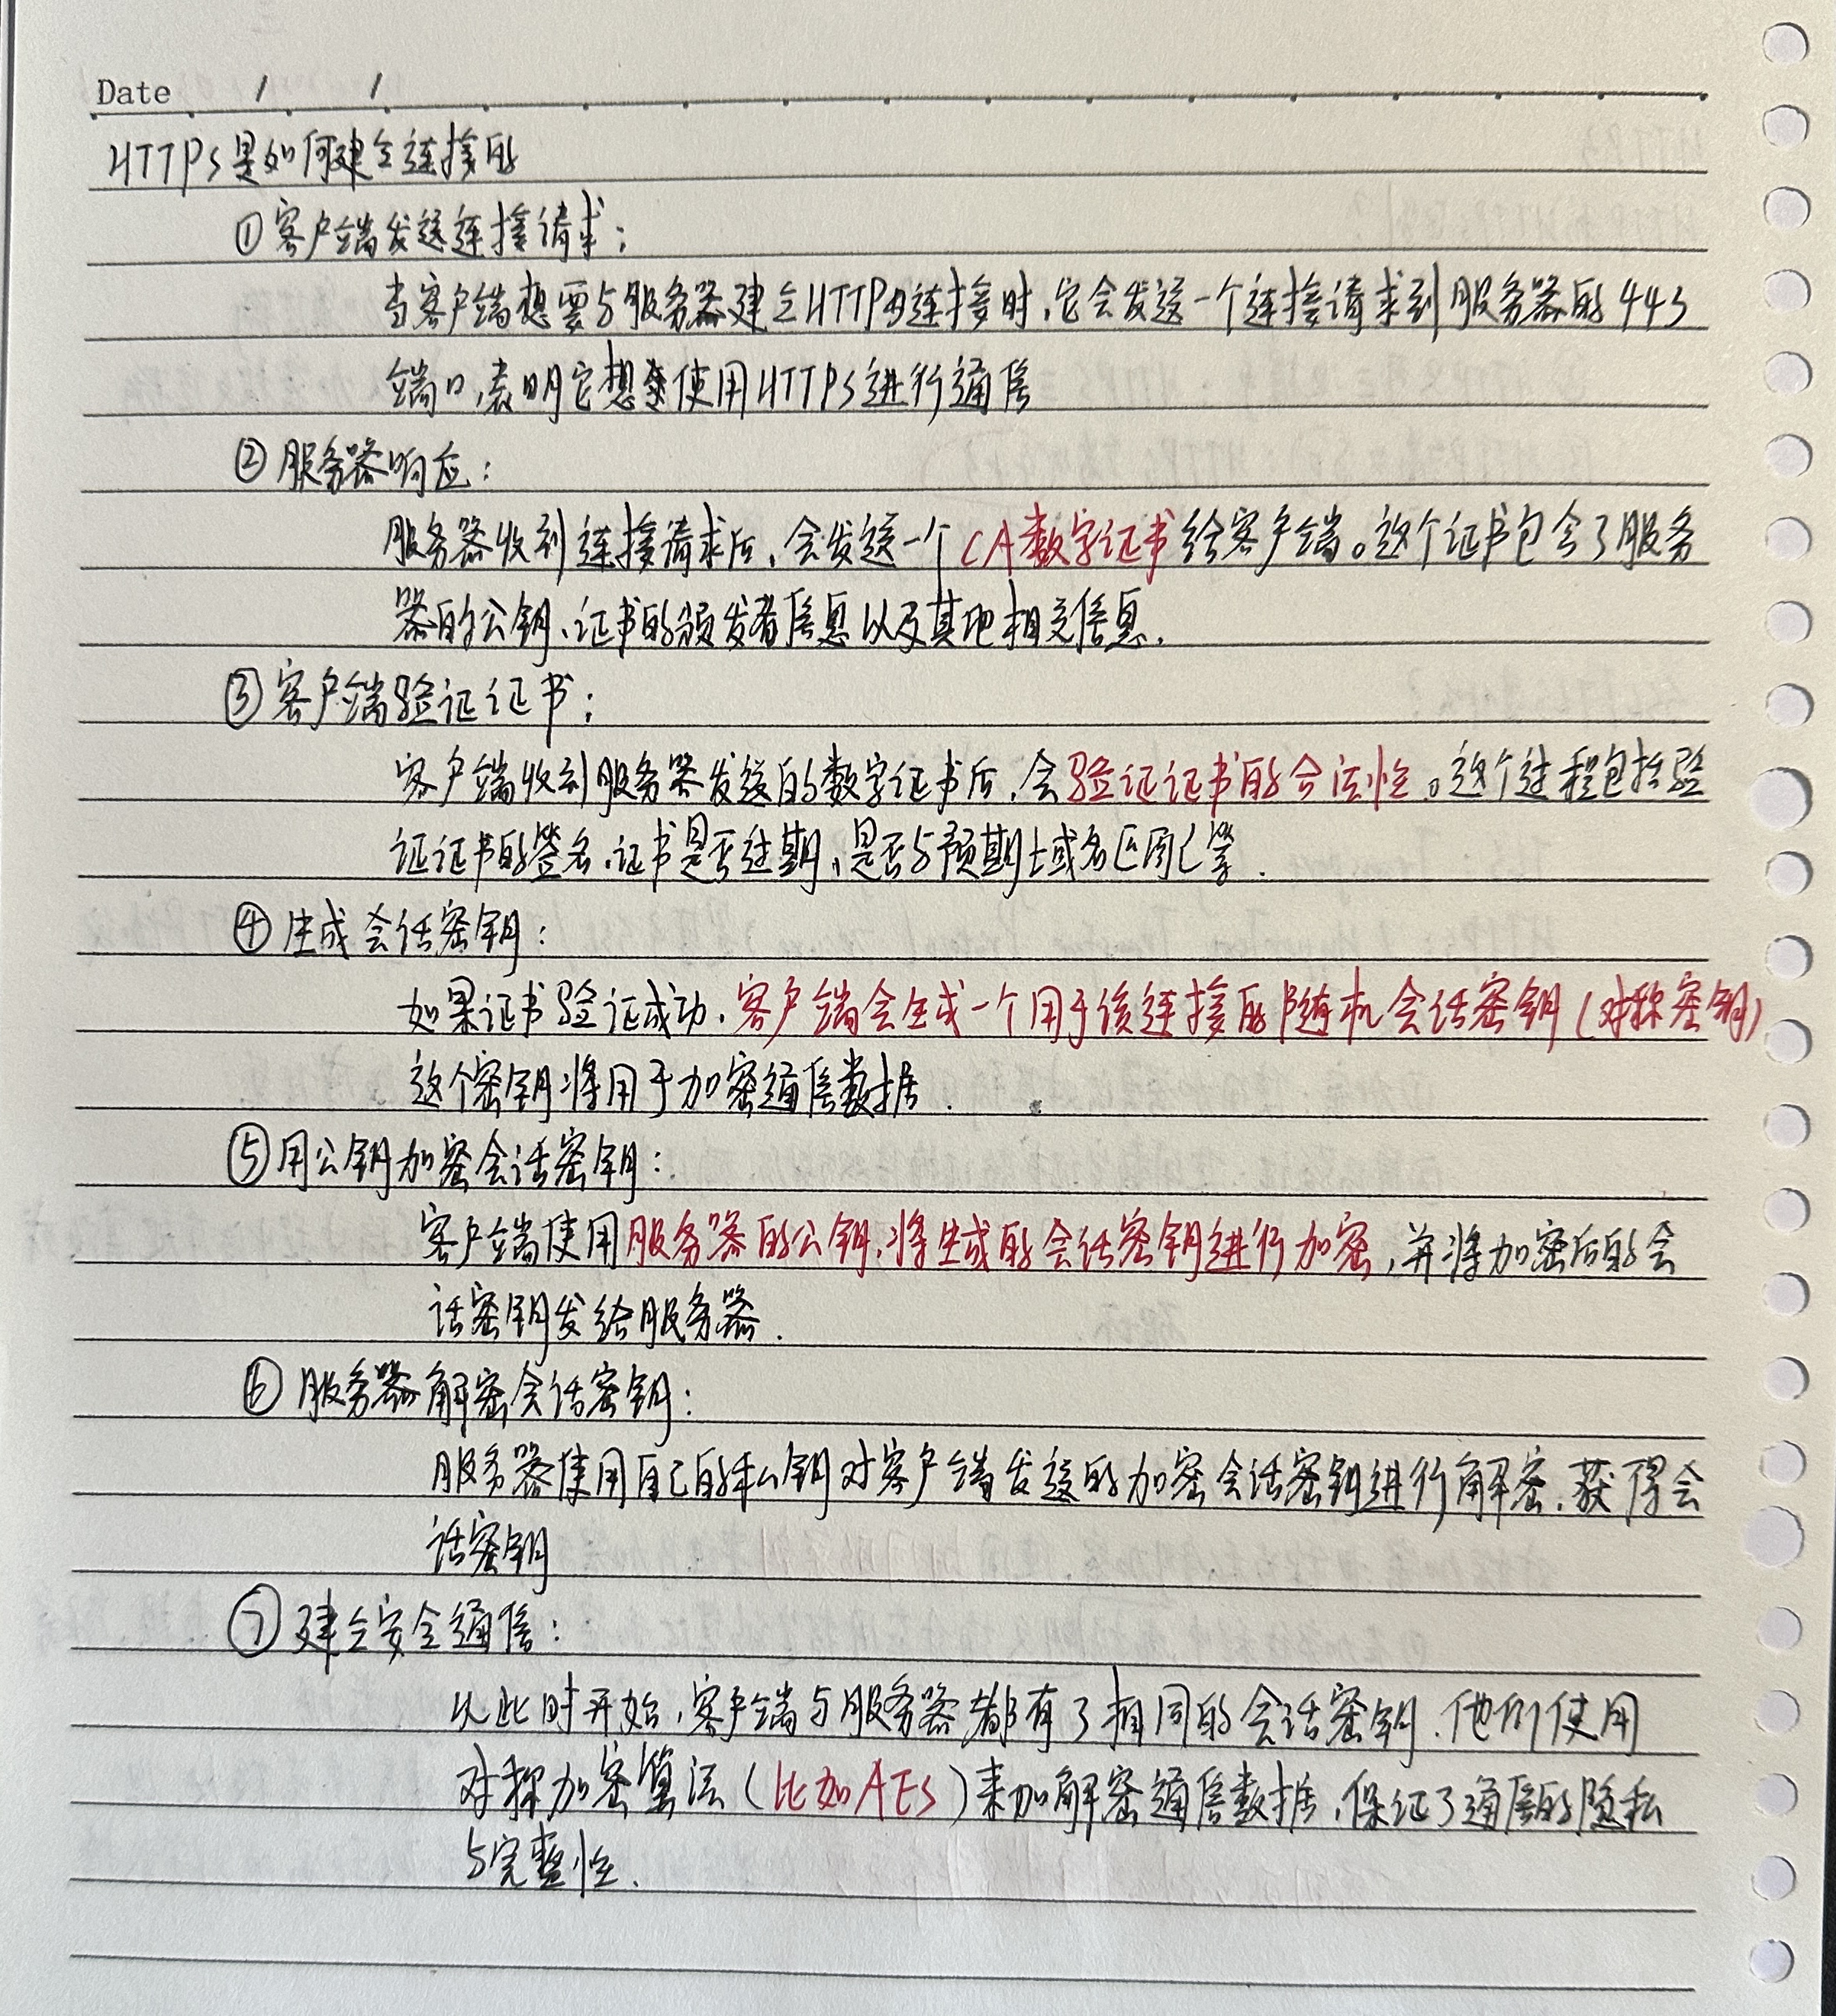 Date / /
HTTPs是如何建立连接的
①客户端发送连接请求：
当客户端想要与服务器建立HTTPs连接时，它会发送一个连接请求到服务器的443
端口，表明它想要使用HTTPs进行通信
②服务器响应：
服务器收到连接请求后，会发送一个CA数字证书给客户端。这个证书包含了服务
器的公钥、证书的颁发者信息以及其他相关信息.
③客户端验证证书：
客户端收到服务器发送的数字证书后，会验证证书的合法性。这个过程包括验
证证书的签名，证书是否过期，是否与预期域名匹配等.
④生成会话密钥：
如果证书验证成功，客户端会生成一个用于该连接的随机会话密钥(对称密钥)
这个密钥将用于加密通信数据.
⑤用公钥加密会话密钥：
客户端使用服务器的公钥，将生成的会话密钥进行加密，并将加密后的会
话密钥发给服务器.
⑥服务器解密会话密钥：
服务器使用自己的私钥对客户端发送的加密会话密钥进行解密，获得会
话密钥
⑦建立安全通信：
从此时开始，客户端与服务器都有了相同的会话密钥，他们使用
对称加密算法(比如AES)来加解密通信数据，保证了通信的隐私
与完整性.